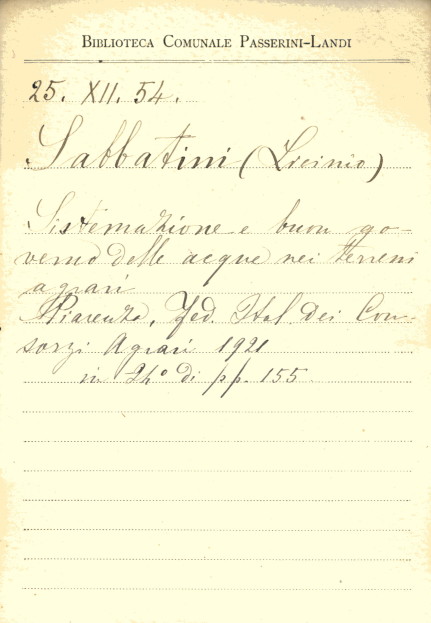 BIBLIOTECA COMUNALE PASSERINI-LANDI
25. XII. 54.
Sabbatini (Licinio)
Sistemazione e buon go-
verno delle acque nei terreni
agrari
Piacenza, Fed. Ital. dei Con-
sorzi Agrari 1921
in 24º di pp. 155.